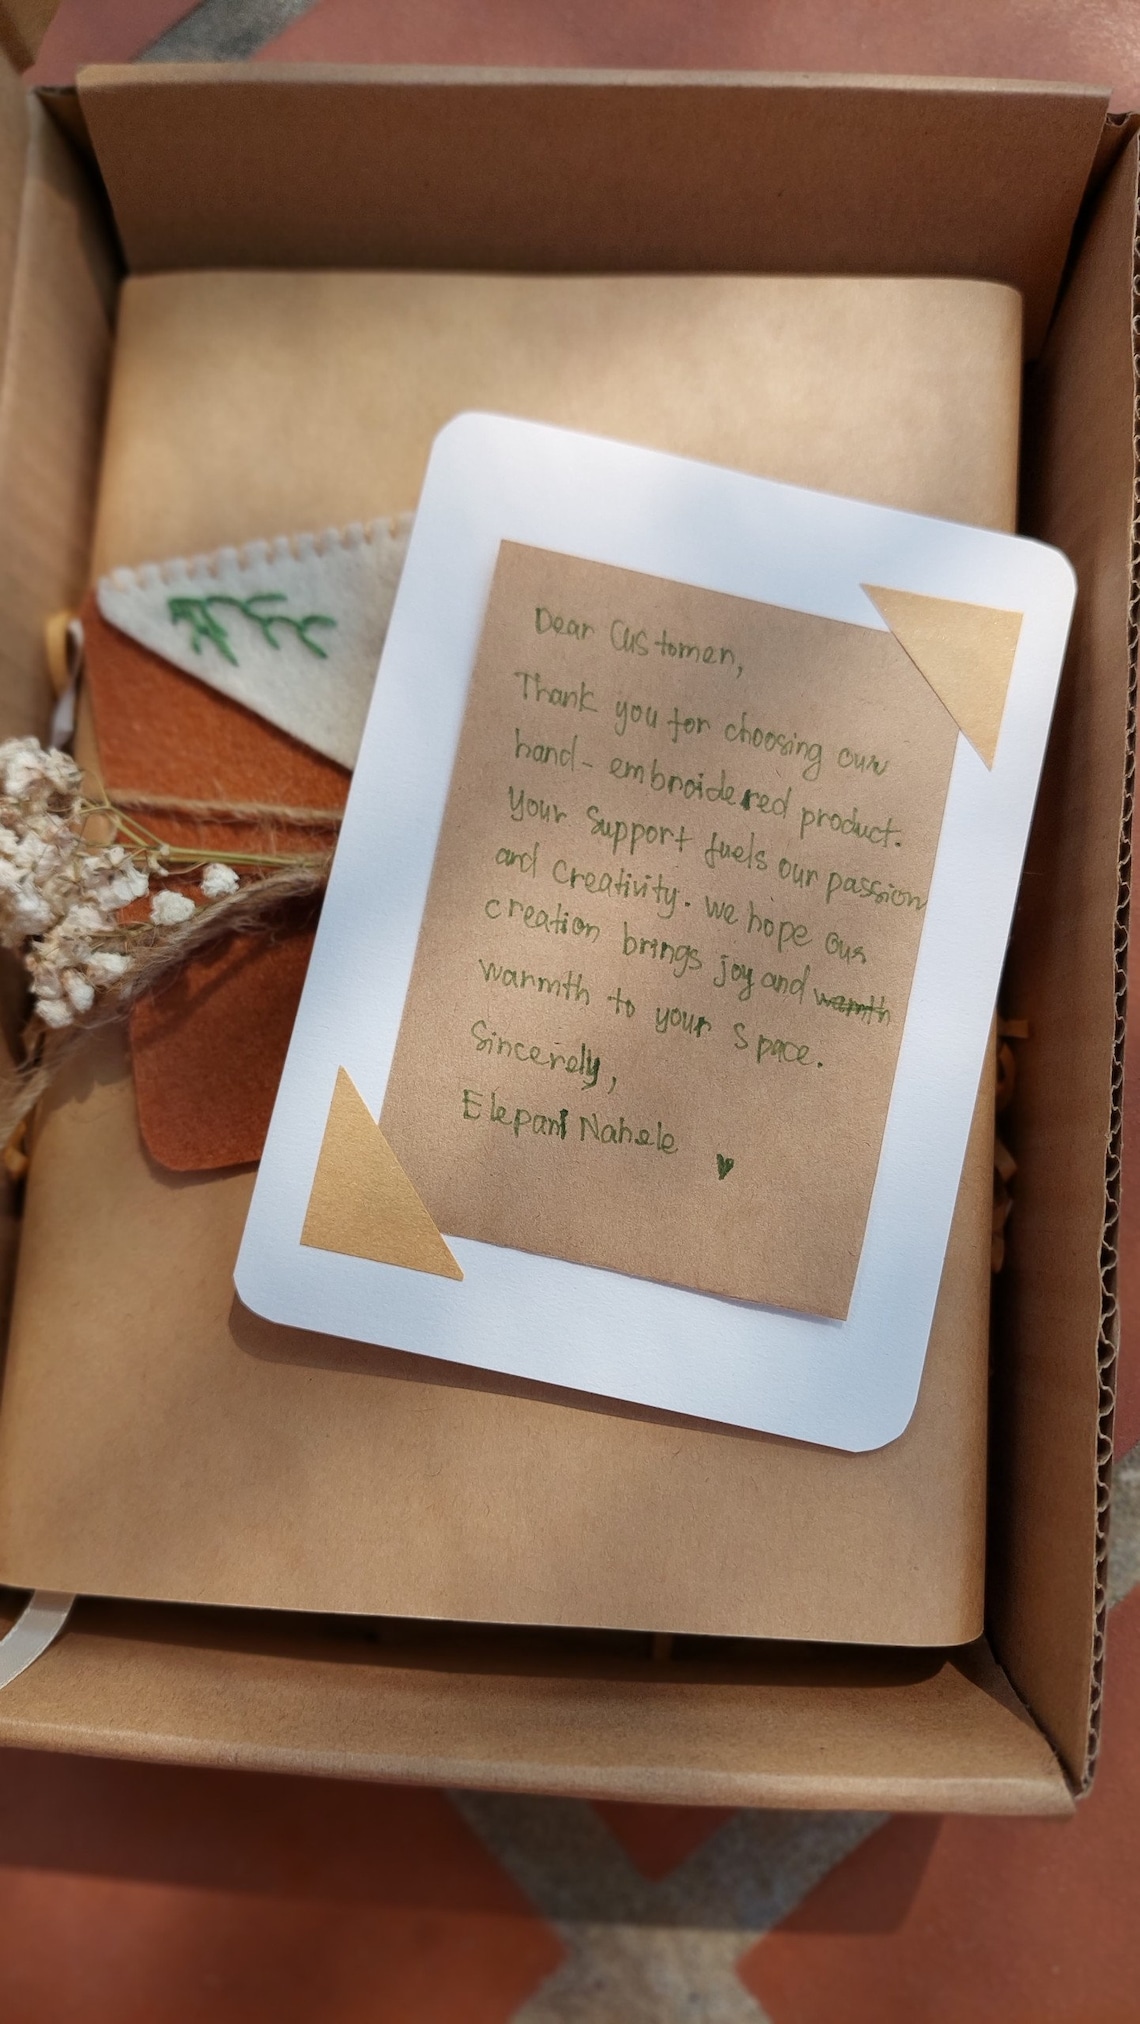 Dear Customer,
Thank you for choosing our
hand-embroidered product.
Your Support fuels our passion
and Creativity. we hope our
creation brings joy and warmth
warmth to your Space.
Sincerely,
Elepani Nahele